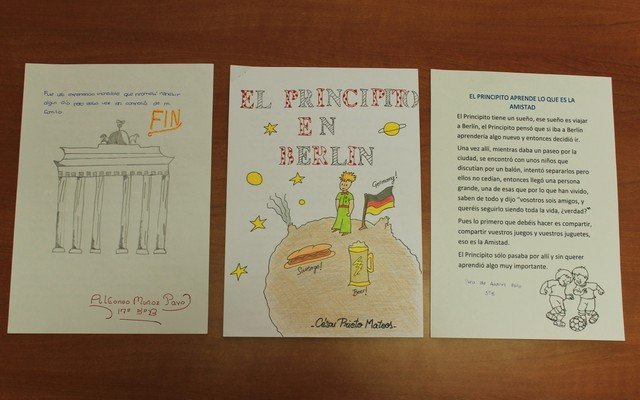 Fue una experiencia increíble que prometí repetir
algún día pero esta vez en compañía de mi
familia
FIN
Alfonso Muñoz Pavo
Nº 17 5ºB
EL PRINCIPITO
EN
BERLÍN
Germany!
Sausage!
Beer!
-César Prieto Mateos-
EL PRINCIPITO APRENDE LO QUE ES LA
AMISTAD
El Principito tiene un sueño, ese sueño es viajar
a Berlín, el Principito pensó que si iba a Berlín
aprendería algo nuevo y entonces decidió ir.
Una vez allí, mientras daba un paseo por la
ciudad, se encontró con unos niños que
discutían por un balón, intentó separarlos pero
ellos no cedían, entonces llegó una persona
grande, una de esas que por lo que han vivido,
saben de todo y dijo "vosotros sois amigos, y
queréis seguirlo siendo toda la vida, ¿verdad?"
Pues lo primero que debéis hacer es compartir,
compartir vuestros juegos y vuestros juguetes,
eso es la Amistad.
El Principito sólo pasaba por allí y sin querer
aprendió algo muy importante.
5ºB